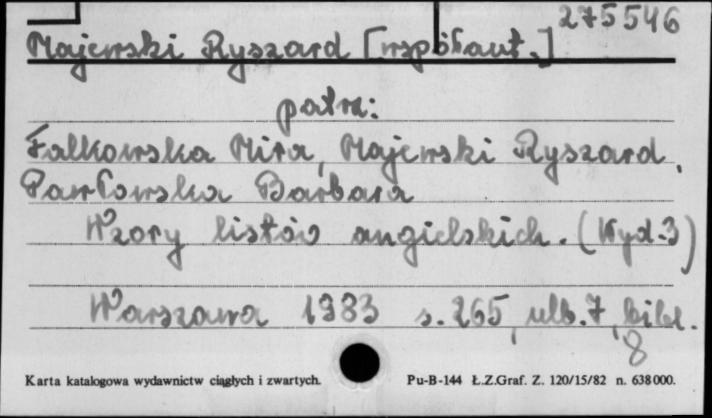 275546
Majewski Ryszard [współaut.]
patrz:
Falkowska Mira, Majewski Ryszard,
Pawłowska Barbara
Wzory listów angielskich. (Wyd. 3)
Warszawa 1983 s. 265, nlb. 7, bibl.
8
Karta katalogowa wydawnictw ciągłych i zwartych. Pu-B-144 Ł.Z.Graf. Z. 120/15/82 n. 638000.